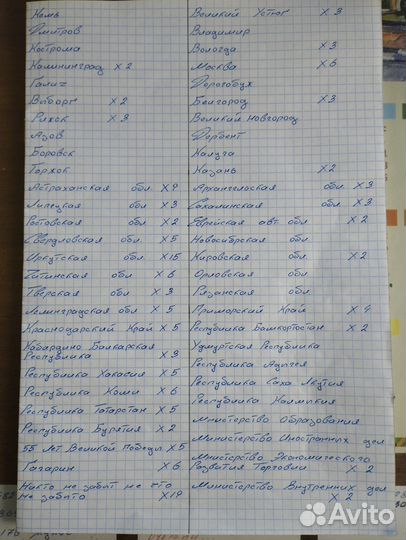 Кемь
Дмитров
Кострома
Калининград х 2
Галич
Выборг х 2
Ряжск х 3
Азов
Боровск
Торжок
Астраханская обл х 9
Липецкая обл х 3
Ростовская обл х 2
Свердловская обл х 5
Иркутская обл х15
Читинская обл х 6
Тверская обл х 3
Ленинградская обл х 5
Краснодарский Край х 5
Кабардино Балкарская
Республика х 3
Республика Хакасия х 5
Республика Коми х 6
Республика Татарстан х 5
Республика Бурятия х 2
55 лет Великой Победы х 5
Гагарин х 6
Никто не забыт не что
не забыто х19
Великий Устюг х 3
Владимир
Вологда х 3
Москва х 6
Дорогобуж
Белгород х 3
Великий Новгород
Дербент
Калуга
Казань х 2
Архангельская обл х 3
Сахалинская обл. х 3
Еврейская авт обл х 2
Новосибирская обл
Кировская обл. х 2
Орловская обл
Рязанская обл
Приморский Край х 4
Республика Башкортостан х 2
Удмуртская Республика
Республика Адыгея
Республика Саха Якутия
Республика Калмыкия
Министерство Образования
Министерство Иностранных дел
Министерство Экономического
Развития Торговли х 2
Министерство Внутренних дел
х 2
Avito